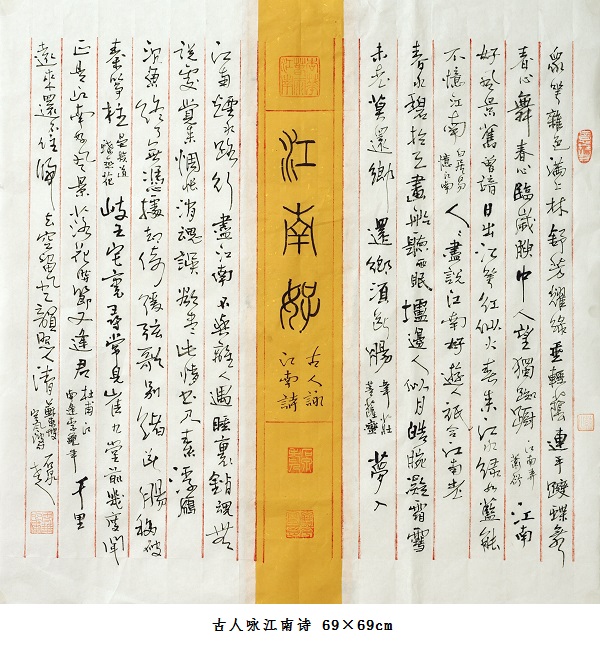 眾花雜色滿上林舒芳耀綠垂輕蔭連手躞蹀舞
春心舞春心臨歲腴中人望獨踟躕 江南弄 蕭衍 江南
好風景舊曾諳日出江花紅似火春來江水綠如藍能
不憶江南 白居易 憶江南 人人盡說江南好遊人衹合江南老
春水碧於天畫船聽雨眠壚邊人似月皓腕凝霜雪
未老莫還鄉還鄉須斷腸 韋莊 菩薩蠻 夢入
江南好
古人詠
江南詩
江南煙水路行盡江南不與離人遇睡裏銷魂無
說處覺來惆悵消魂誤欲盡此情書尺素浮雁
沉魚終了無憑據却倚緩弦歌別緒斷腸移破
秦箏柱 晏幾道 蝶戀花 岐王宅裏尋常見崔九堂前幾度聞
正是江南好風景落花時節又逢君 杜甫 江南逢李龜年 千里
遠來還不住歸去空留風韻照人清
古人咏江南诗 69×69cm